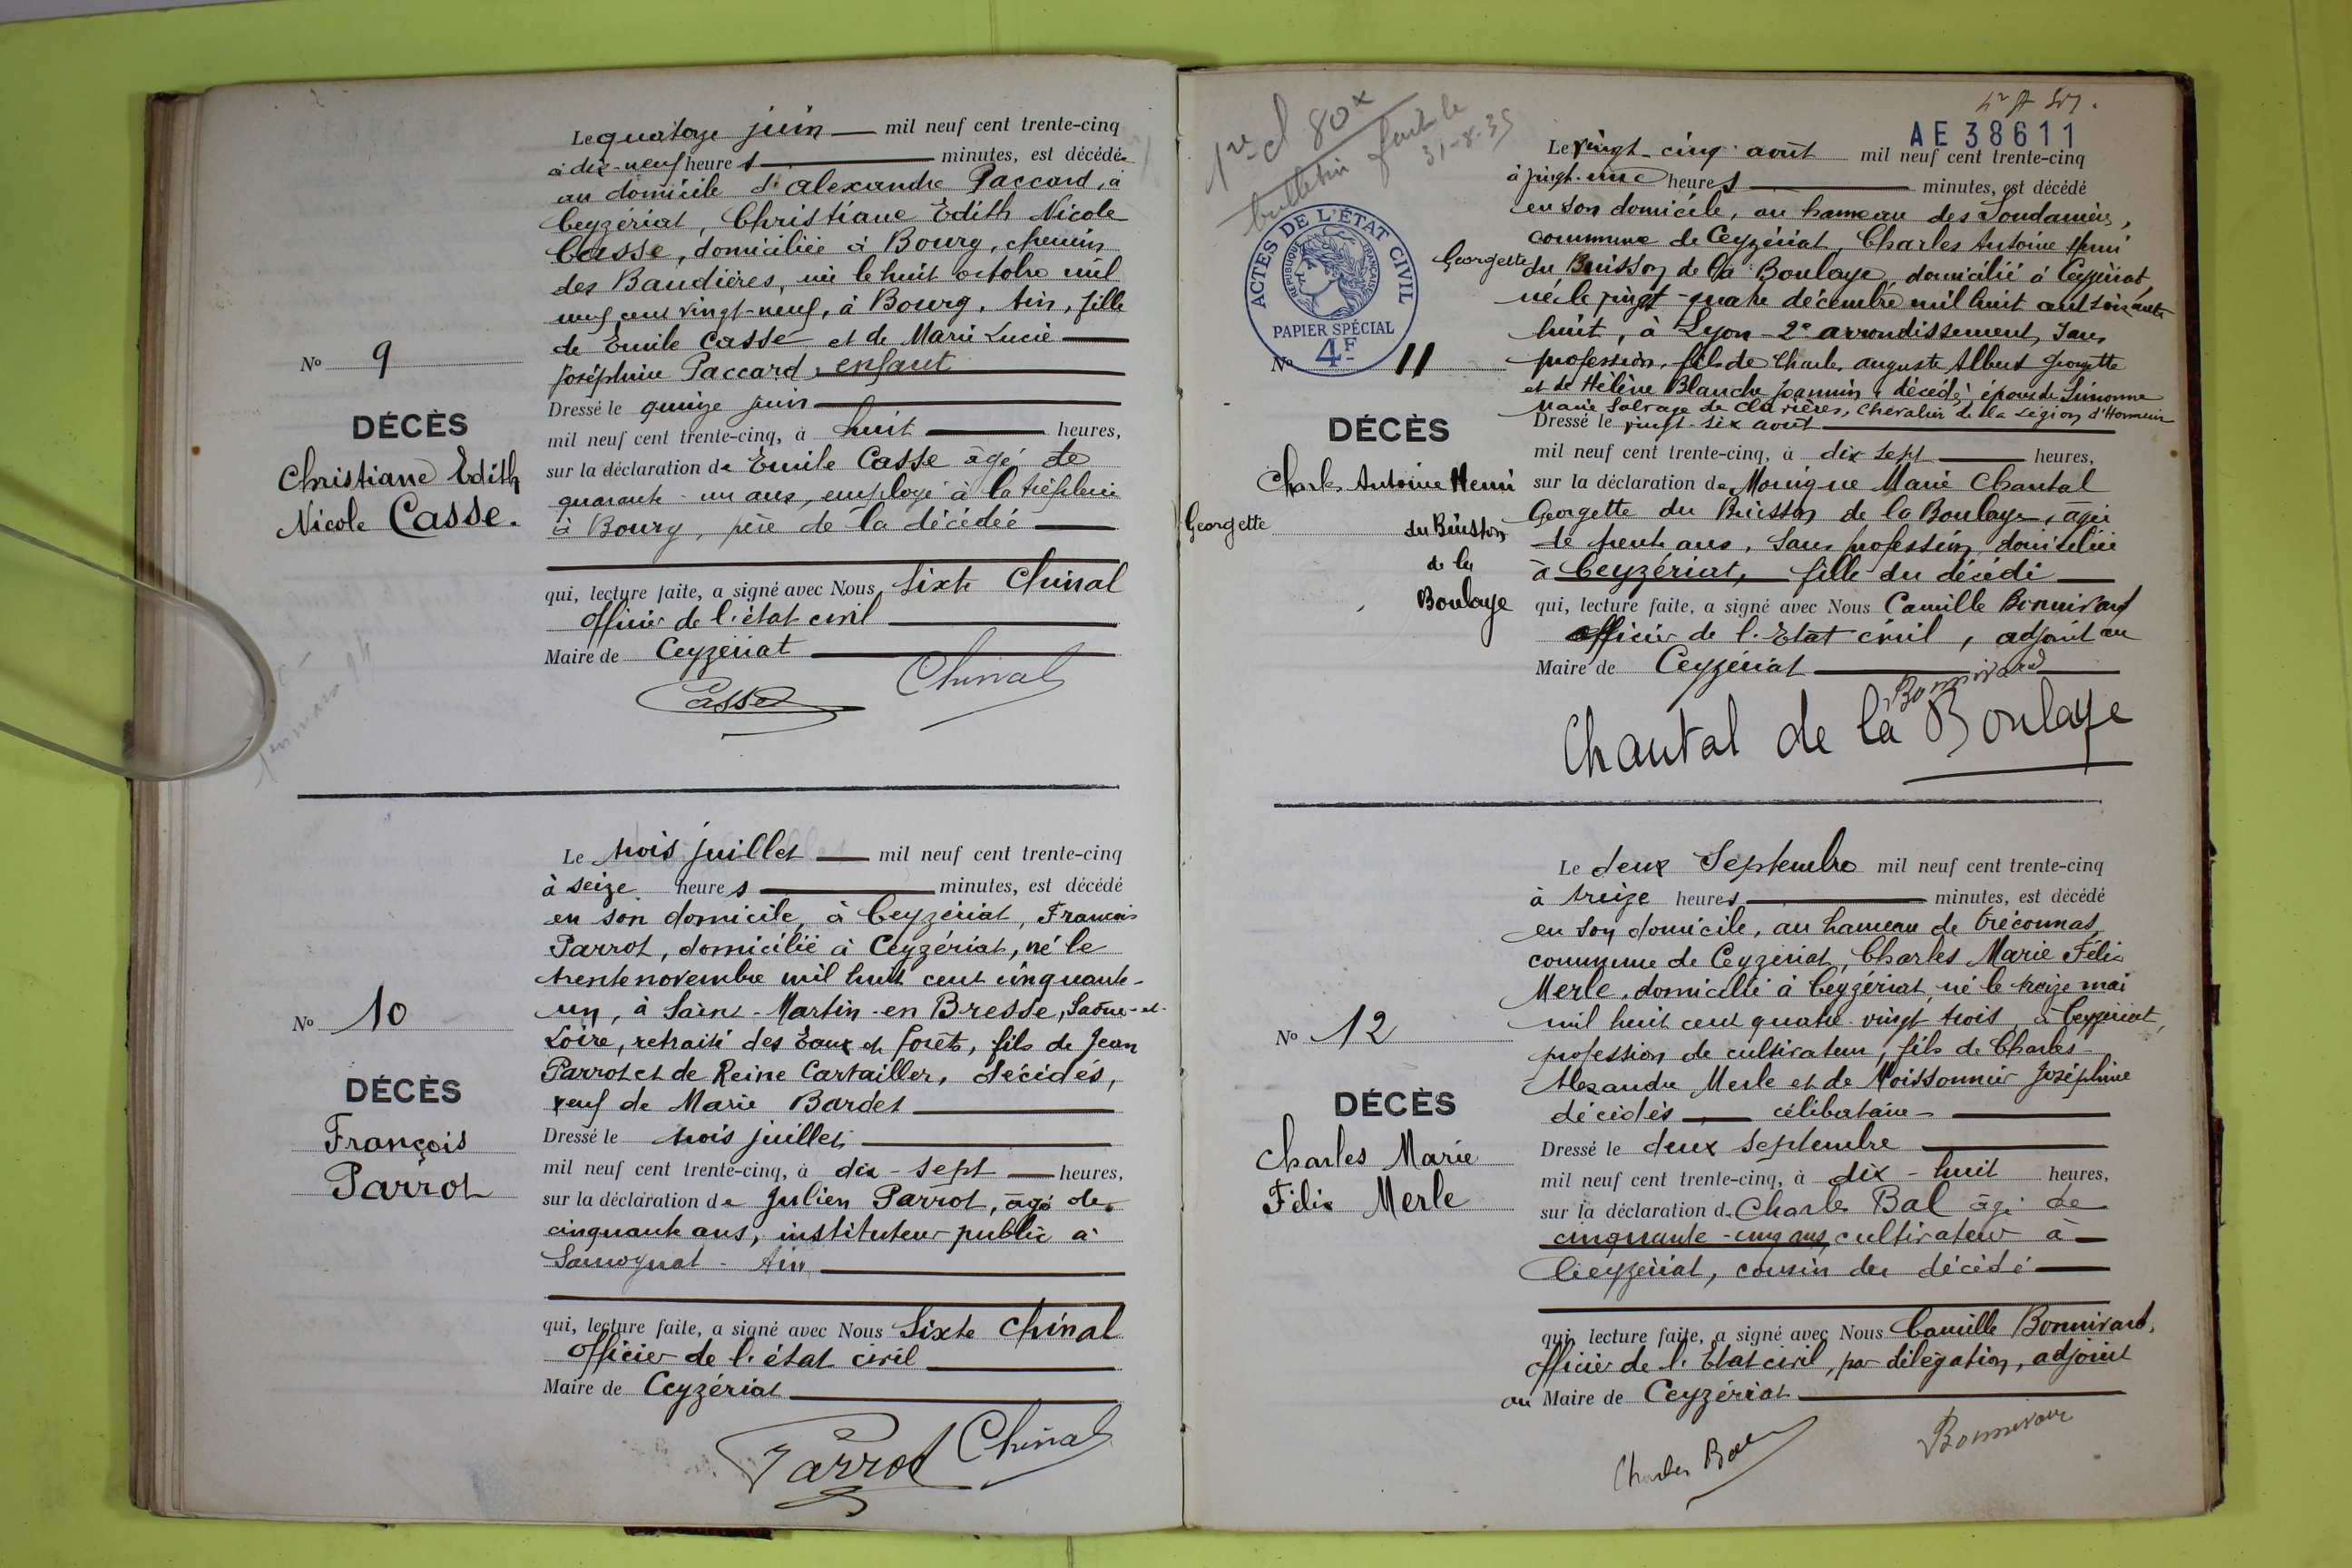 Le quatorze juin mil neuf cent trente-cinq
à dix-neuf heures minutes, est décédée
au domicile d'Alexandre Paccard, à
Ceyzériat, Christiane Edith Nicole
Casse, domiciliée à Bourg, chemin
des Baudières, née le huit octobre mil
neuf cent vingt-neuf, à Bourg, Ain, fille
de Emile Casse et de Marie Lucie
Joséphine Paccard, enfant
Nº 9
DÉCÈS
Christiane Edith
Nicole Casse.
Dressé le quinze juin
mil neuf cent trente-cinq, à huit heures,
sur la déclaration de Emile Casse âgé de
quarante-un ans, employé à la tréfilerie
à Bourg, père de la décédée
qui, lecture faite, a signé avec Nous, Sixte Chinal
officier de l'état civil
Maire de Ceyzériat
Casse Chinal
Le trois juillet mil neuf cent trente-cinq
à seize heures minutes, est décédé
en son domicile, à Ceyzériat, François
Parrot, domicilié à Ceyzériat, né le
trente novembre mil huit cent cinquante-
un, à Saint-Martin-en Bresse, Saône-et-
Loire, retraité des Eaux et forêts, fils de Jean
Parrot et de Reine Cartailler, décédés,
veuf de Marie Bardet
Nº 10
DÉCÈS
François
Parrot
Dressé le trois juillet
mil neuf cent trente-cinq, à dix-sept heures,
sur la déclaration de Julien Parrot, âgé de
cinquante ans, instituteur public à
Samognat - Ain
qui, lecture faite, a signé avec Nous Sixte Chinal
officier de l'état civil
Maire de Ceyzériat
Parrot Chinal
1re cl 80x
bulletin fait le
31-8-35
AE 38611
ACTES DE L'ÉTAT CIVIL
RÉPUBLIQUE FRANÇAISE
PAPIER SPÉCIAL
4F
Le vingt-cinq août mil neuf cent trente-cinq
à vingt-une heures minutes, est décédé
en son domicile, au hameau des Soudanières,
commune de Ceyzériat, Charles Antoine Henri
Georgette du Buisson de la Boulaye, domicilié à Ceyzériat,
né le vingt-quatre décembre mil huit cent soixante
huit, à Lyon - 2e arrondissement, sans
profession, fils de Charles Auguste Albert Georgette
et de Hélène Blanche Joannin, décédés, époux de Simonne
Marie Salvage de Clavières, Chevalier de la Légion d'Honneur
Nº 11
DÉCÈS
Charles Antoine Henri
Georgette du Buisson
de la
Boulaye
Dressé le vingt-six août
mil neuf cent trente-cinq, à dix sept heures,
sur la déclaration de Monique Marie Chantal
Georgette du Buisson de la Boulaye, âgée
de trente ans, sans profession, domiciliée
à Ceyzériat, fille du décédé
qui, lecture faite, a signé avec Nous Camille Bonnivard
officier de l'Etat civil, adjoint au
Maire de Ceyzériat
Bonnivard
Chantal de la Boulaye
Le deux Septembre mil neuf cent trente-cinq
à treize heures minutes, est décédé
en son domicile, au hameau de Tréconnas
commune de Ceyzériat, Charles Marie Félix
Merle, domicilié à Ceyzériat, né le treize mai
mil huit cent quatre-vingt trois, à Ceyzériat,
profession de cultivateur, fils de Charles-
Alexandre Merle et de Moissonnier Joséphine
décédés célibataire
Nº 12
DÉCÈS
Charles Marie
Félix Merle
Dressé le deux septembre
mil neuf cent trente-cinq, à dix-huit heures,
sur la déclaration de Charles Bal âgé de
cinquante-cinq ans, cultivateur à
Ceyzériat, cousin du décédé
qui, lecture faite, a signé avec Nous Camille Bonnivard,
officier de l'Etat civil, par délégation, adjoint
au Maire de Ceyzériat
Charles Bal Bonnivard